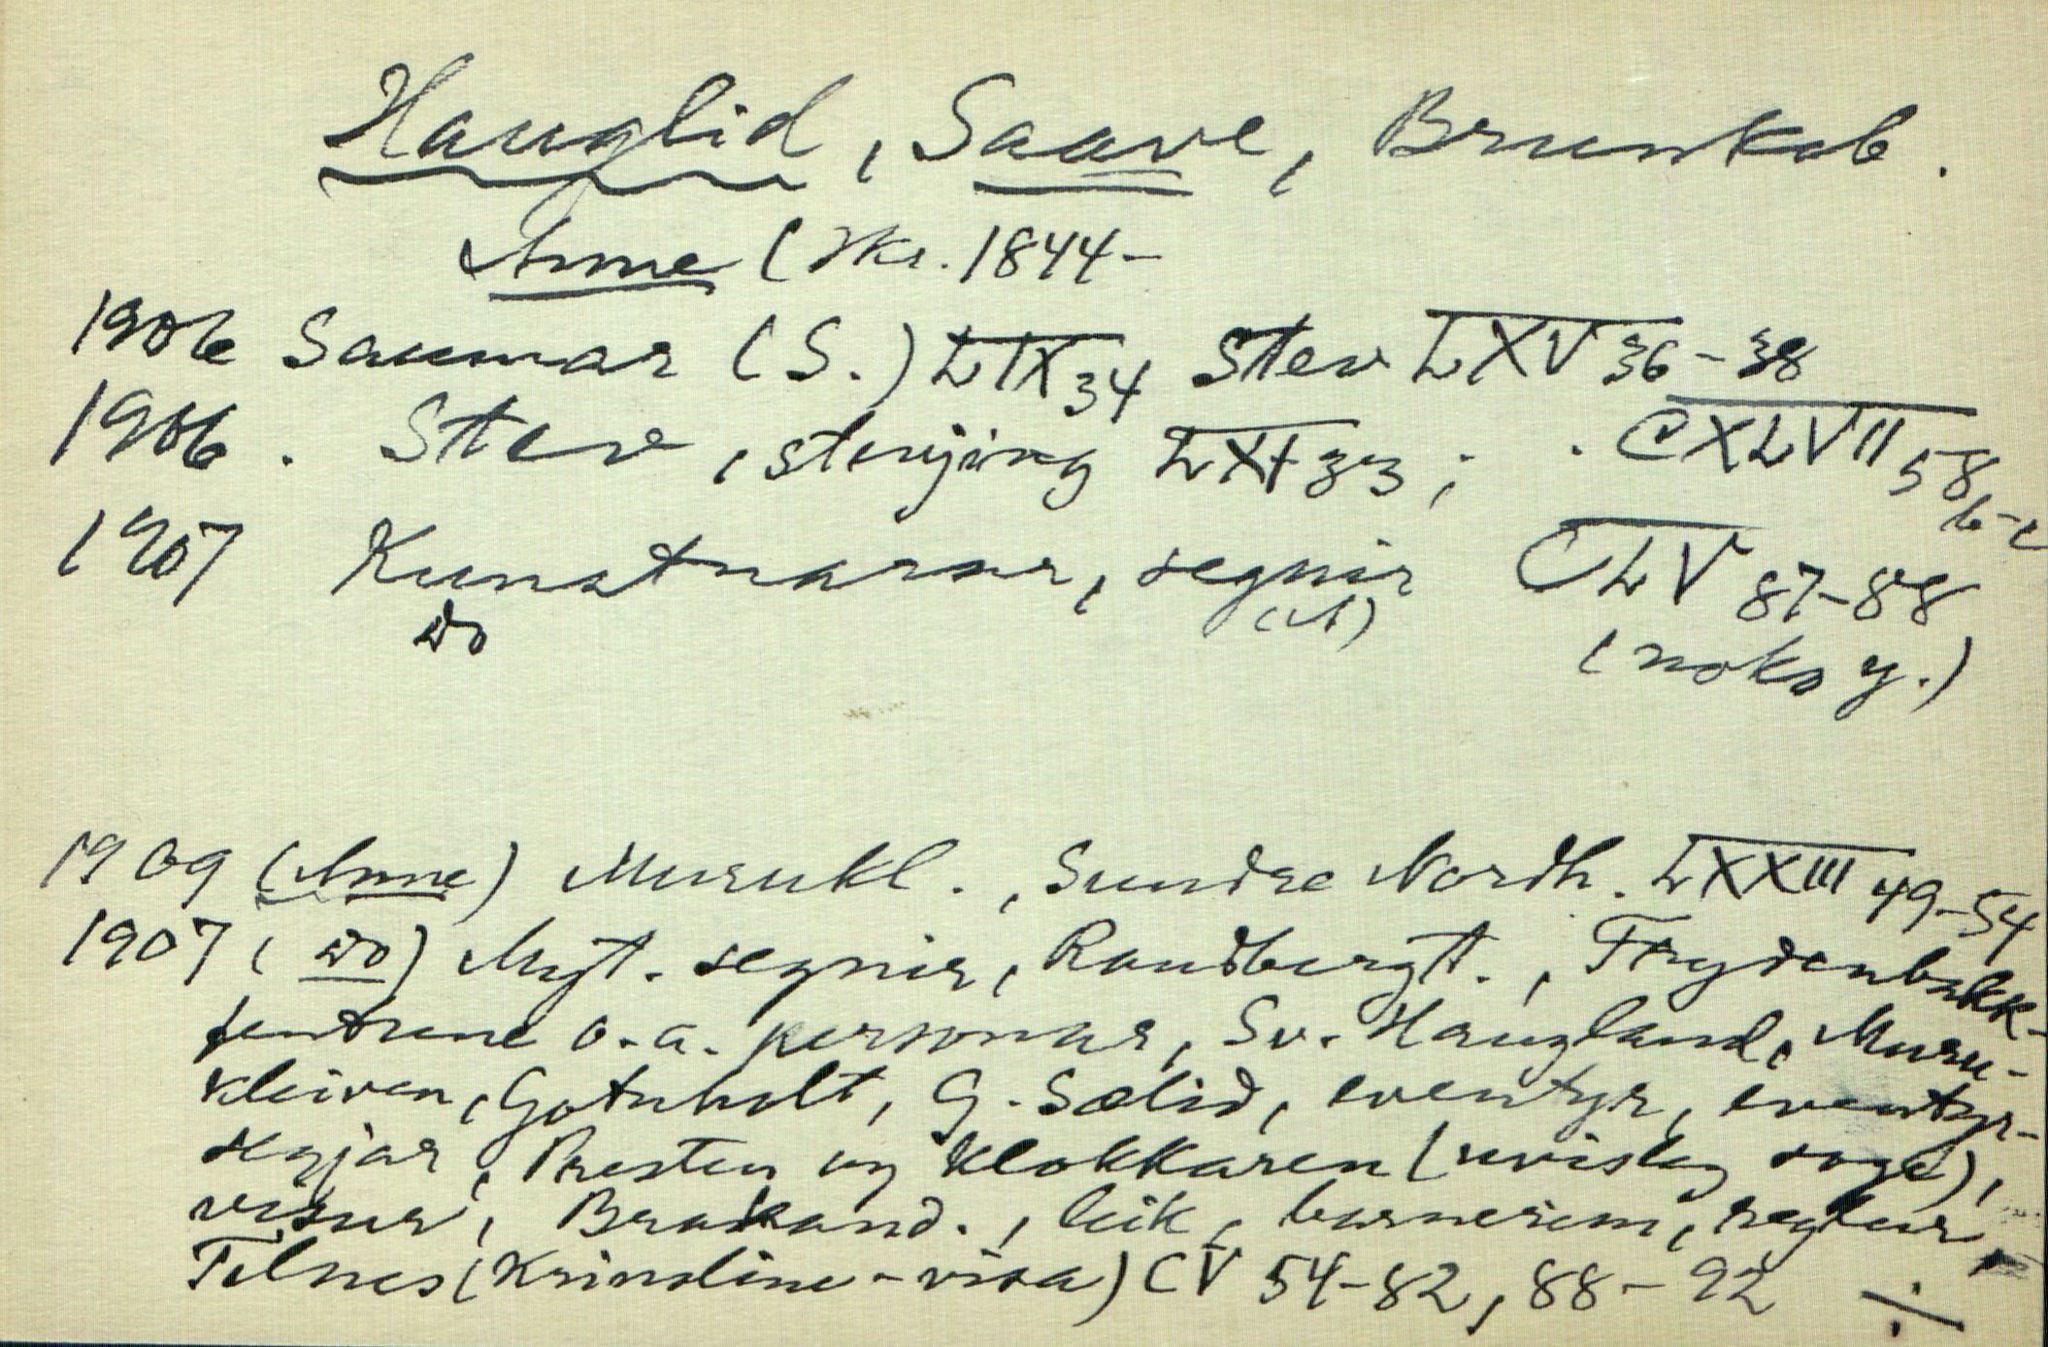 Hauglid, Saave, Brunkeb.
Anne (Mkr. 1844-
1906 Saumar (S.) LIX 34 Stev LXV 36-38
1906. Stev, stevjing LXI 33; . CXLVII 58 b-c
1907 Kunstnarar, segnir CLV 87-88
Do (A) (noko y.)
1909 (Anne) Murukl., Sundre Nordh. LXXIII 49-54
1907 (Do) Myt. segnir, Raudbergt., Frydenbakk-
fentene o.a. personar, Sv. Haugland, Muru-
kleiven, Gotuholt, G. Sælid, eventyr, eventyr-
segjar, Presten og klokkaren (uvisleg soge),
visur, Brakand., leik, barnerim, reglur
Telnes (Krinoline-visa) CV 54-82, 88-92 ÷